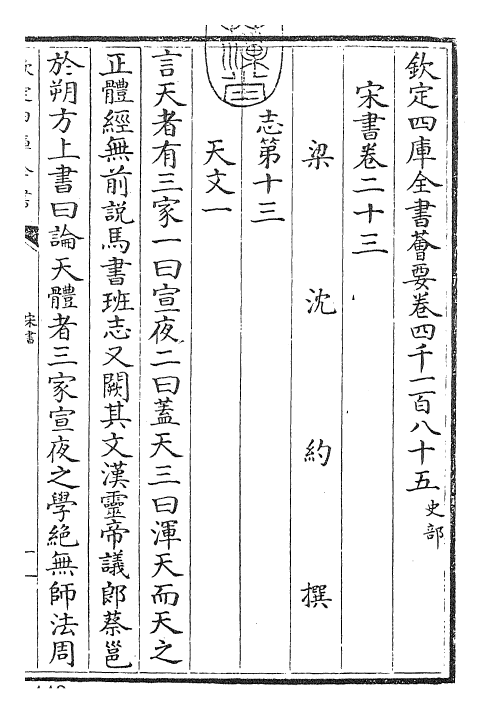 欽定四庫全書薈要卷四千一百八十五 史部
宋書卷二十三
梁 沈 約 撰
志第十三
天文一
言天者有三家一曰宣夜二曰蓋天三曰渾天而天之
正體經無前説馬書班志又闕其文漢靈帝議郎蔡邕
於朔方上書曰論天體者三家宣夜之學絶無師法周
宋書